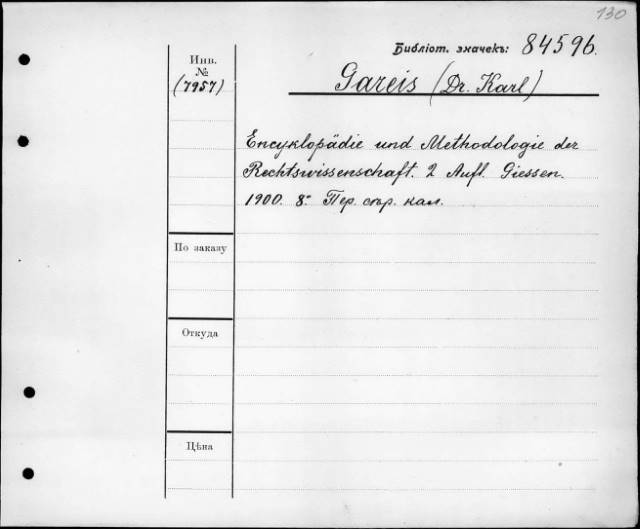 130
Библіот. значекъ: 84596.
Инв.
№
(7957)
Gareis (Dr. Karl)
Encyklopädie und Methodologie der
Rechtswissenschaft. 2 Aufl. Giessen.
1900. 8º Пер. стр. кал.
По заказу
Откуда
Цѣна